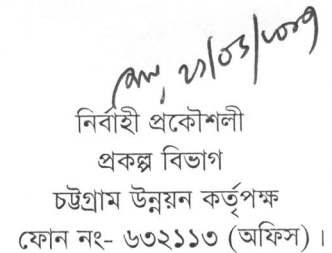 নির্বাহী প্রকৌশলী
প্রকল্প বিভাগ
চট্টগ্রাম উন্নয়ন কর্তৃপক্ষ
ফোন নং- ৬৩২১১৩ (অফিস) ।